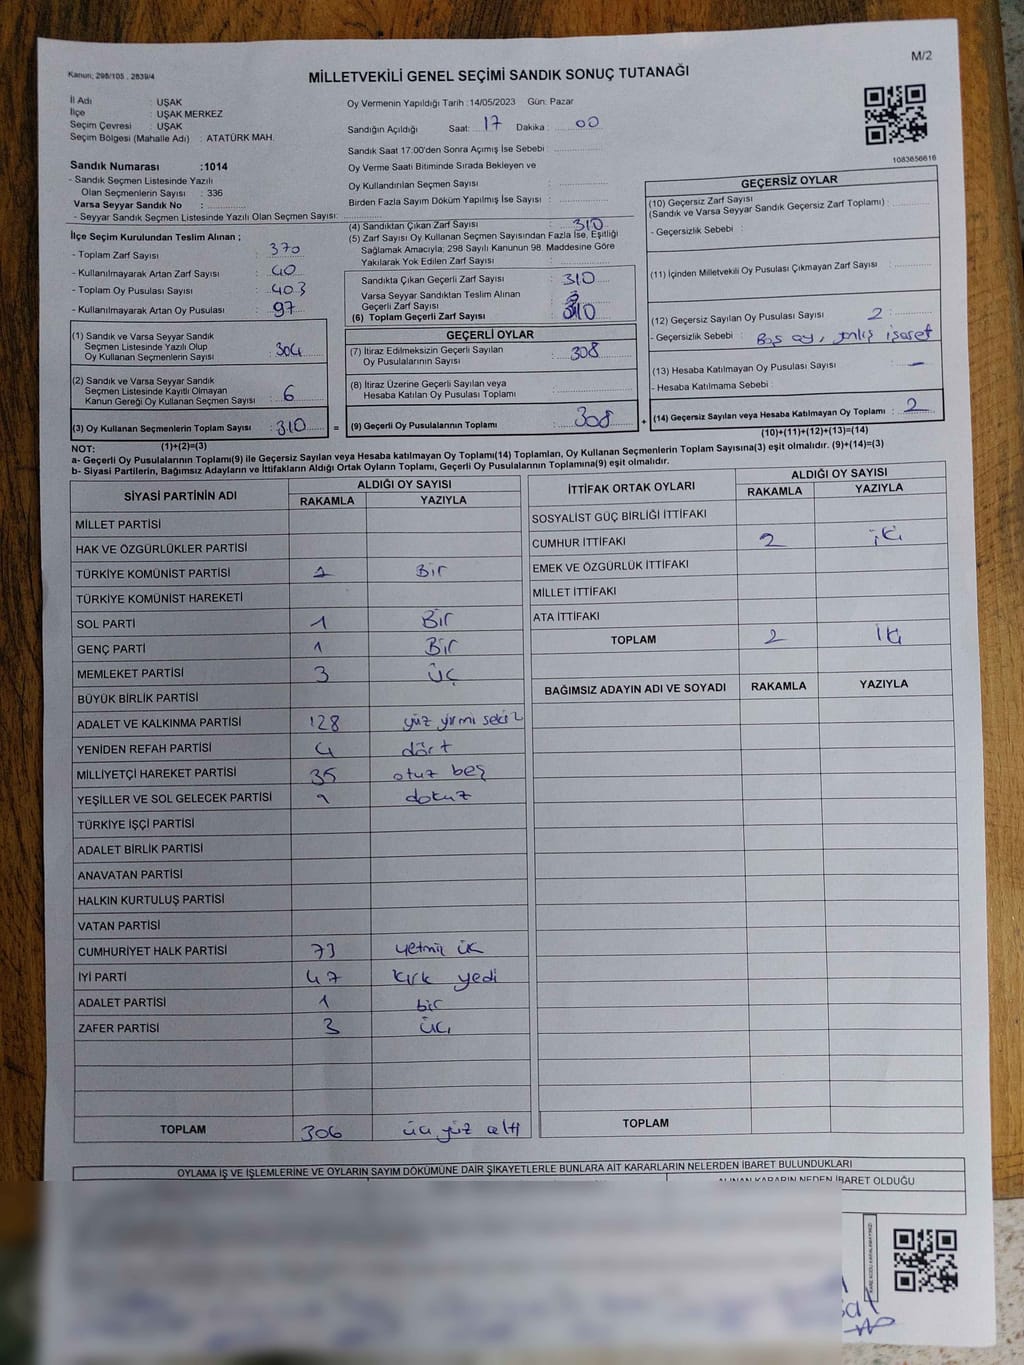 M/2
Kanun; 298/105 , 2839/4
MİLLETVEKİLİ GENEL SEÇİMİ SANDIK SONUÇ TUTANAĞI
İl Adı : UŞAK
İlçe : UŞAK MERKEZ
Seçim Çevresi : UŞAK
Seçim Bölgesi (Mahalle Adı) : ATATÜRK MAH.
Sandık Numarası :1014
- Sandık Seçmen Listesinde Yazılı
Olan Seçmenlerin Sayısı : 336
Varsa Seyyar Sandık No :
- Seyyar Sandık Seçmen Listesinde Yazılı Olan Seçmen Sayısı:
Oy Vermenin Yapıldığı Tarih :14/05/2023 Gün: Pazar
Sandığın Açıldığı Saat: 17 Dakika : 00
Sandık Saat 17:00'den Sonra Açımış İse Sebebi :
Oy Verme Saati Bitiminde Sırada Bekleyen ve
Oy Kullandırılan Seçmen Sayısı :
Birden Fazla Sayım Döküm Yapılmış İse Sayısı :
1083656616
İlçe Seçim Kurulundan Teslim Alınan ;
- Toplam Zarf Sayısı : 370
- Kullanılmayarak Artan Zarf Sayısı : 40
- Toplam Oy Pusulası Sayısı : 403
- Kullanılmayarak Artan Oy Pusulası : 97
(1) Sandık ve Varsa Seyyar Sandık
Seçmen Listesinde Yazılı Olup
Oy Kullanan Seçmenlerin Sayısı : 304
(2) Sandık ve Varsa Seyyar Sandık
Seçmen Listesinde Kayıtlı Olmayan
Kanun Gereği Oy Kullanan Seçmen Sayısı : 6
(3) Oy Kullanan Seçmenlerin Toplam Sayısı : 310
(1)+(2)=(3)
(4) Sandıktan Çıkan Zarf Sayısı : 310
(5) Zarf Sayısı Oy Kullanan Seçmen Sayısından Fazla İse, Eşitliği
Sağlamak Amacıyla; 298 Sayılı Kanunun 98. Maddesine Göre
Yakılarak Yok Edilen Zarf Sayısı :
Sandıkta Çıkan Geçerli Zarf Sayısı : 310
Varsa Seyyar Sandıktan Teslim Alınan
Geçerli Zarf Sayısı :
(6) Toplam Geçerli Zarf Sayısı : 310
=
GEÇERLİ OYLAR
(7) İtiraz Edilmeksizin Geçerli Sayılan
Oy Pusulalarının Sayısı : 308
(8) İtiraz Üzerine Geçerli Sayılan veya
Hesaba Katılan Oy Pusulası Toplamı :
(9) Geçerli Oy Pusulalarının Toplamı : 308
+
GEÇERSİZ OYLAR
(10) Geçersiz Zarf Sayısı
(Sandık ve Varsa Seyyar Sandık Geçersiz Zarf Toplamı) :
- Geçersizlik Sebebi :
(11) İçinden Milletvekili Oy Pusulası Çıkmayan Zarf Sayısı :
(12) Geçersiz Sayılan Oy Pusulası Sayısı : 2
- Geçersizlik Sebebi : Boş oy, yanlış işaret
(13) Hesaba Katılmayan Oy Pusulası Sayısı : -
- Hesaba Katılmama Sebebi :
(14) Geçersiz Sayılan veya Hesaba Katılmayan Oy Toplamı : 2
(10)+(11)+(12)+(13)=(14)
NOT:
a- Geçerli Oy Pusulalarının Toplamı(9) ile Geçersiz Sayılan veya Hesaba katılmayan Oy Toplamı(14) Toplamları, Oy Kullanan Seçmenlerin Toplam Sayısına(3) eşit olmalıdır. (9)+(14)=(3)
b- Siyasi Partilerin, Bağımsız Adayların ve İttifakların Aldığı Ortak Oyların Toplamı, Geçerli Oy Pusulalarının Toplamına(9) eşit olmalıdır.
SİYASİ PARTİNİN ADI ALDIĞI OY SAYISI
RAKAMLA YAZIYLA
MİLLET PARTİSİ
HAK VE ÖZGÜRLÜKLER PARTİSİ
TÜRKİYE KOMÜNİST PARTİSİ 1 Bir
TÜRKİYE KOMÜNİST HAREKETİ
SOL PARTİ 1 Bir
GENÇ PARTİ 1 Bir
MEMLEKET PARTİSİ 3 üç
BÜYÜK BİRLİK PARTİSİ
ADALET VE KALKINMA PARTİSİ 128 yüz yirmi sekiz
YENİDEN REFAH PARTİSİ 4 dört
MİLLİYETÇİ HAREKET PARTİSİ 35 otuz beş
YEŞİLLER VE SOL GELECEK PARTİSİ 9 dokuz
TÜRKİYE İŞÇİ PARTİSİ
ADALET BİRLİK PARTİSİ
ANAVATAN PARTİSİ
HALKIN KURTULUŞ PARTİSİ
VATAN PARTİSİ
CUMHURİYET HALK PARTİSİ 73 yetmiş üç
İYİ PARTİ 47 kırk yedi
ADALET PARTİSİ 1 bir
ZAFER PARTİSİ 3 üç
TOPLAM 306 üç yüz altı
İTTİFAK ORTAK OYLARI ALDIĞI OY SAYISI
RAKAMLA YAZIYLA
SOSYALİST GÜÇ BİRLİĞİ İTTİFAKI
CUMHUR İTTİFAKI 2 iki
EMEK VE ÖZGÜRLÜK İTTİFAKI
MİLLET İTTİFAKI
ATA İTTİFAKI
TOPLAM 2 iki
BAĞIMSIZ ADAYIN ADI VE SOYADI RAKAMLA YAZIYLA
TOPLAM
OYLAMA İŞ VE İŞLEMLERİNE VE OYLARIN SAYIM DÖKÜMÜNE DAİR ŞİKAYETLERLE BUNLARA AİT KARARLARIN NELERDEN İBARET BULUNDUKLARI
ALINAN KARARIN NEDEN İBARET OLDUĞU